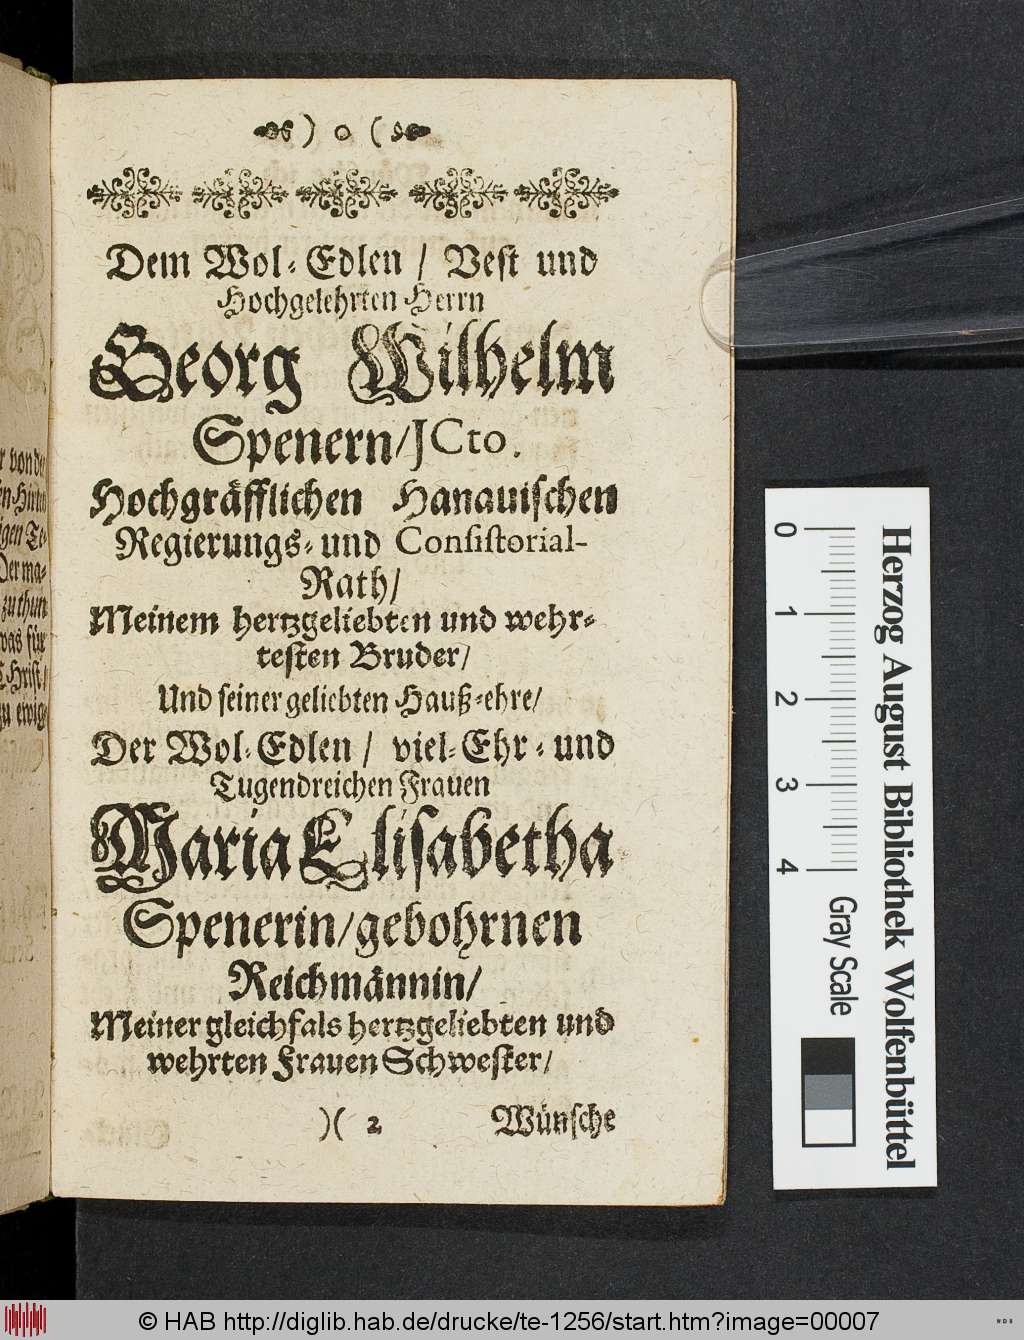 ) o (
Dem Wol-Edlen / Vest und
Hochgelehrten Herrn
Georg Wilhelm
Spenern/JCto.
Hochgräfflichen Hanauischen
Regierungs- und Consistorial-
Rath/
Meinem hertzgeliebten und wehr-
testen Bruder/
Und seiner geliebten Hauß-ehre/
Der Wol-Edlen / viel-Ehr- und
Tugendreichen Frauen
Maria Elisabetha
Spenerin/gebohrnen
Reichmännin/
Meiner gleichfals hertzgeliebten und
wehrten Frauen Schwester/
)( 2 Wünsche
Herzog August Bibliothek Wolfenbüttel
0 1 2 3 4 Gray Scale
© HAB http://diglib.hab.de/drucke/te-1256/start.htm?image=00007